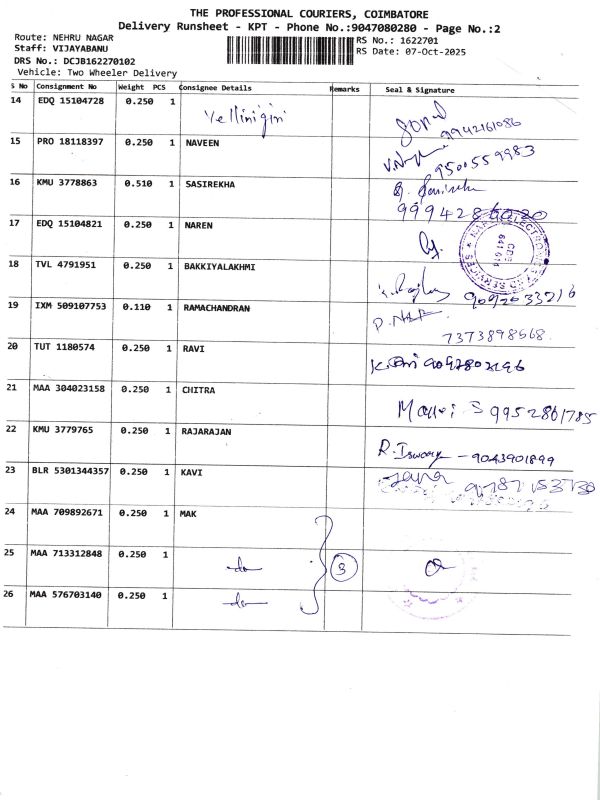 THE PROFESSIONAL COURIERS, COIMBATORE
Delivery Runsheet - KPT - Phone No.:9047080280 - Page No.:2
Route: NEHRU NAGAR
RS No.: 1622701
Staff: VIJAYABANU
RS Date: 07-Oct-2025
DRS No.: DCJB162270102
Vehicle: Two Wheeler Delivery
S No Consignment No Weight PCS Consignee Details Remarks Seal & Signature
14 EDQ 15104728 0.250 1 Vellinigiri
9942161086
15 PRO 18118397 0.250 1 NAVEEN
9500559983
16 KMU 3778863 0.510 1 SASIREKHA
9994286020
17 EDQ 15104821 0.250 1 NAREN
CBE 641 014
18 TVL 4791951 0.250 1 BAKKIYALAKHMI
9092033216
19 IXM 509107753 0.110 1 RAMACHANDRAN
7373898568
20 TUT 1180574 0.250 1 RAVI
21 MAA 304023158 0.250 1 CHITRA
9952861785
22 KMU 3779765 0.250 1 RAJARAJAN
R. Iswarya - 9043901899
23 BLR 5301344357 0.250 1 KAVI
9787153730
24 MAA 709892671 0.250 1 MAK
25 MAA 713312848 0.250 1 do 3
26 MAA 576703140 0.250 1 do